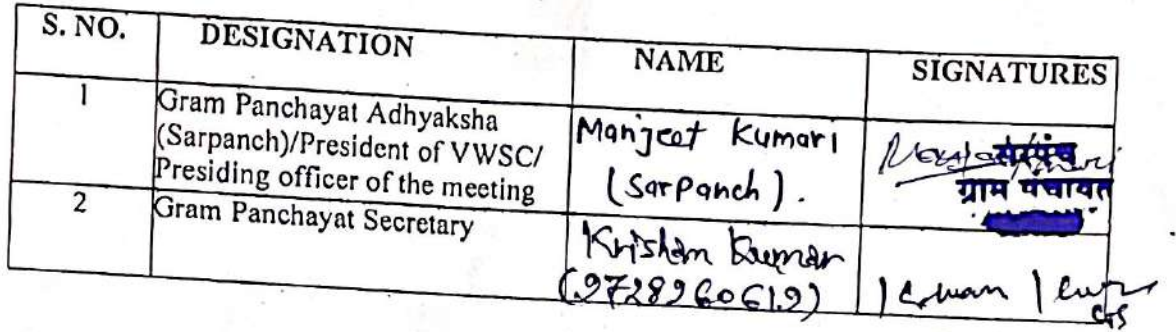 S. NO. DESIGNATION NAME SIGNATURES
1 Gram Panchayat Adhyaksha
(Sarpanch)/President of VWSC/
Presiding officer of the meeting
Manjeet Kumari
(Sarpanch).
सरपंच
ग्राम पंचायत
2 Gram Panchayat Secretary
Krishan Kumar
(9728960619)